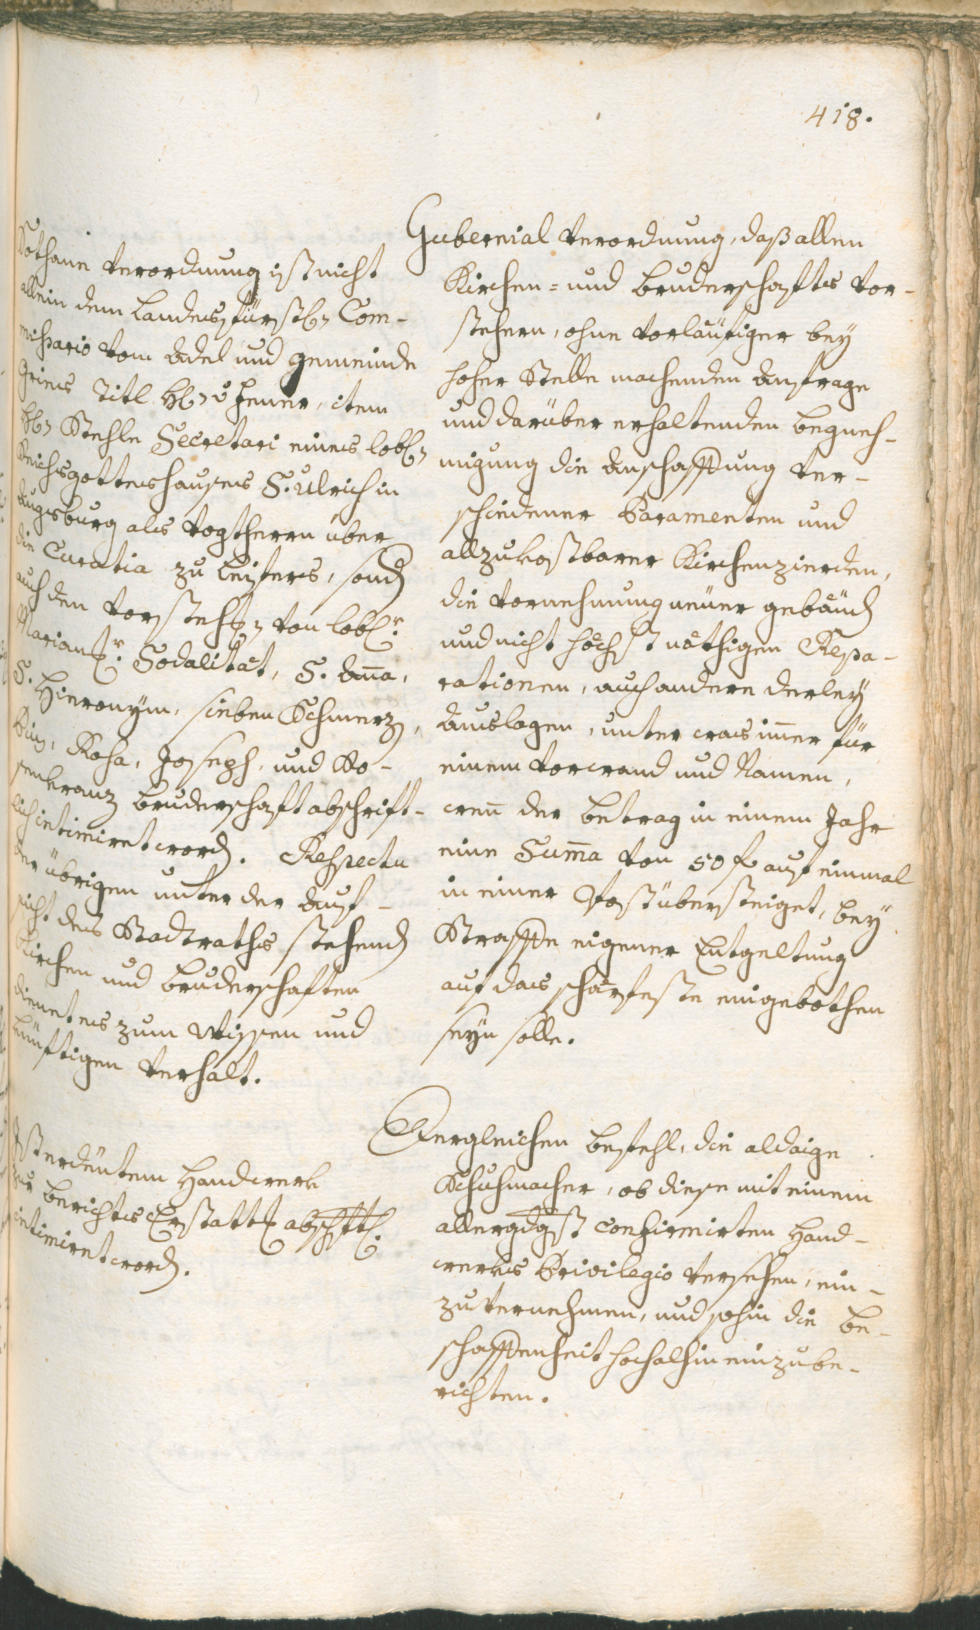 418.
Sothane Verordnung ist nicht
allein dem Landesfürstl. Com-
missario vom Adel und gemeinde
Gries Titl H. v Jenner, item
H. Stehle Secretari eines lobl.
Reichsgotteshauses S. Ulrich in
Augsburg als Vogtherrn über
die Curatia zu Leifers, sond
auch den Vorstehern von lobl.r
Marian.r Sodalität, S. Aña,
S. Hieronÿm, sieben Schmerz,
Rosa, Joseph, und Ro-
senkranz bruderschaft abschrift-
lich intimirt word. Respectu
der übrigen unter der Auf-
sicht des Stadtraths stehend
Kirchen und bruderschaften
dienet es zum Wissen und
künftigen Verhalt.
Ist erdeütem Handwerk
berichts Erstattung abschftl.
intimirt word.
Gubernial Verordnung, daß allen
Kirchen- und bruderschafts Vor-
stehern, ohne vorläufiger beÿ
hoher Stelle machenden Anfrage
und darüber erhaltenden begneh-
migung die Anschaffung ver-
schiedener Paramenten und
allzukostbarer Kirchenzierden,
die Vornehmung neüer gebäud
und nicht höchst nöthigen Repa-
rationen, auch andere derleÿ
Auslagen, unter was im̃er für
einem Vorwand und Namen,
weñ der betrag in einem Jahr
eine Sum̃a von 50 f auf einmal
in einer Post übersteiget, beÿ
Straffe eigener Entgeltung
auf das schärfeste eingebothen
seÿn solle.
Dergleichen befehl, die aldaige
Schuhmacher, ob diese mit einem
allergdgst confirmirten Hand-
werks Privilegio versehen, ein-
zuvernehmen, und sohin die be-
schaffenheit hochalhin einzube-
richten.